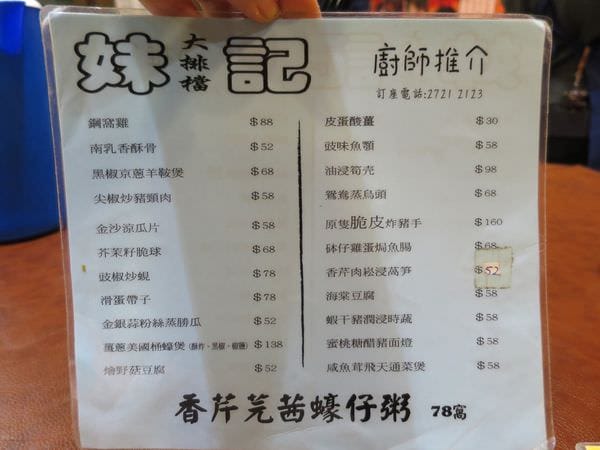 妹大排檔記
廚師推介
訂座電話:2721 2123
鋼窩雞 $88
南乳香酥骨 $52
黑椒京蔥羊鞍煲 $68
尖椒炒豬頸肉 $58
金沙涼瓜片 $58
芥茉籽脆球 $68
豉椒炒蜆 $78
滑蛋帶子 $78
金銀蒜粉絲蒸勝瓜 $52
薑蔥美國桶蠔煲(酥炸、黑椒、椒鹽) $138
燴野菇豆腐 $52
皮蛋酸薑 $30
豉味魚顎 $58
油浸筍壳 $98
鴛鴦蒸烏頭 $68
原隻脆皮炸豬手 $160
砵仔雞蛋焗魚腸 $68
香芹肉崧浸萵笋 $52
海棠豆腐 $58
蝦干豬潤浸時蔬 $58
蜜桃糖醋豬面燈 $58
咸魚茸飛天通菜煲 $58
香芹芫茜蠔仔粥 78窩